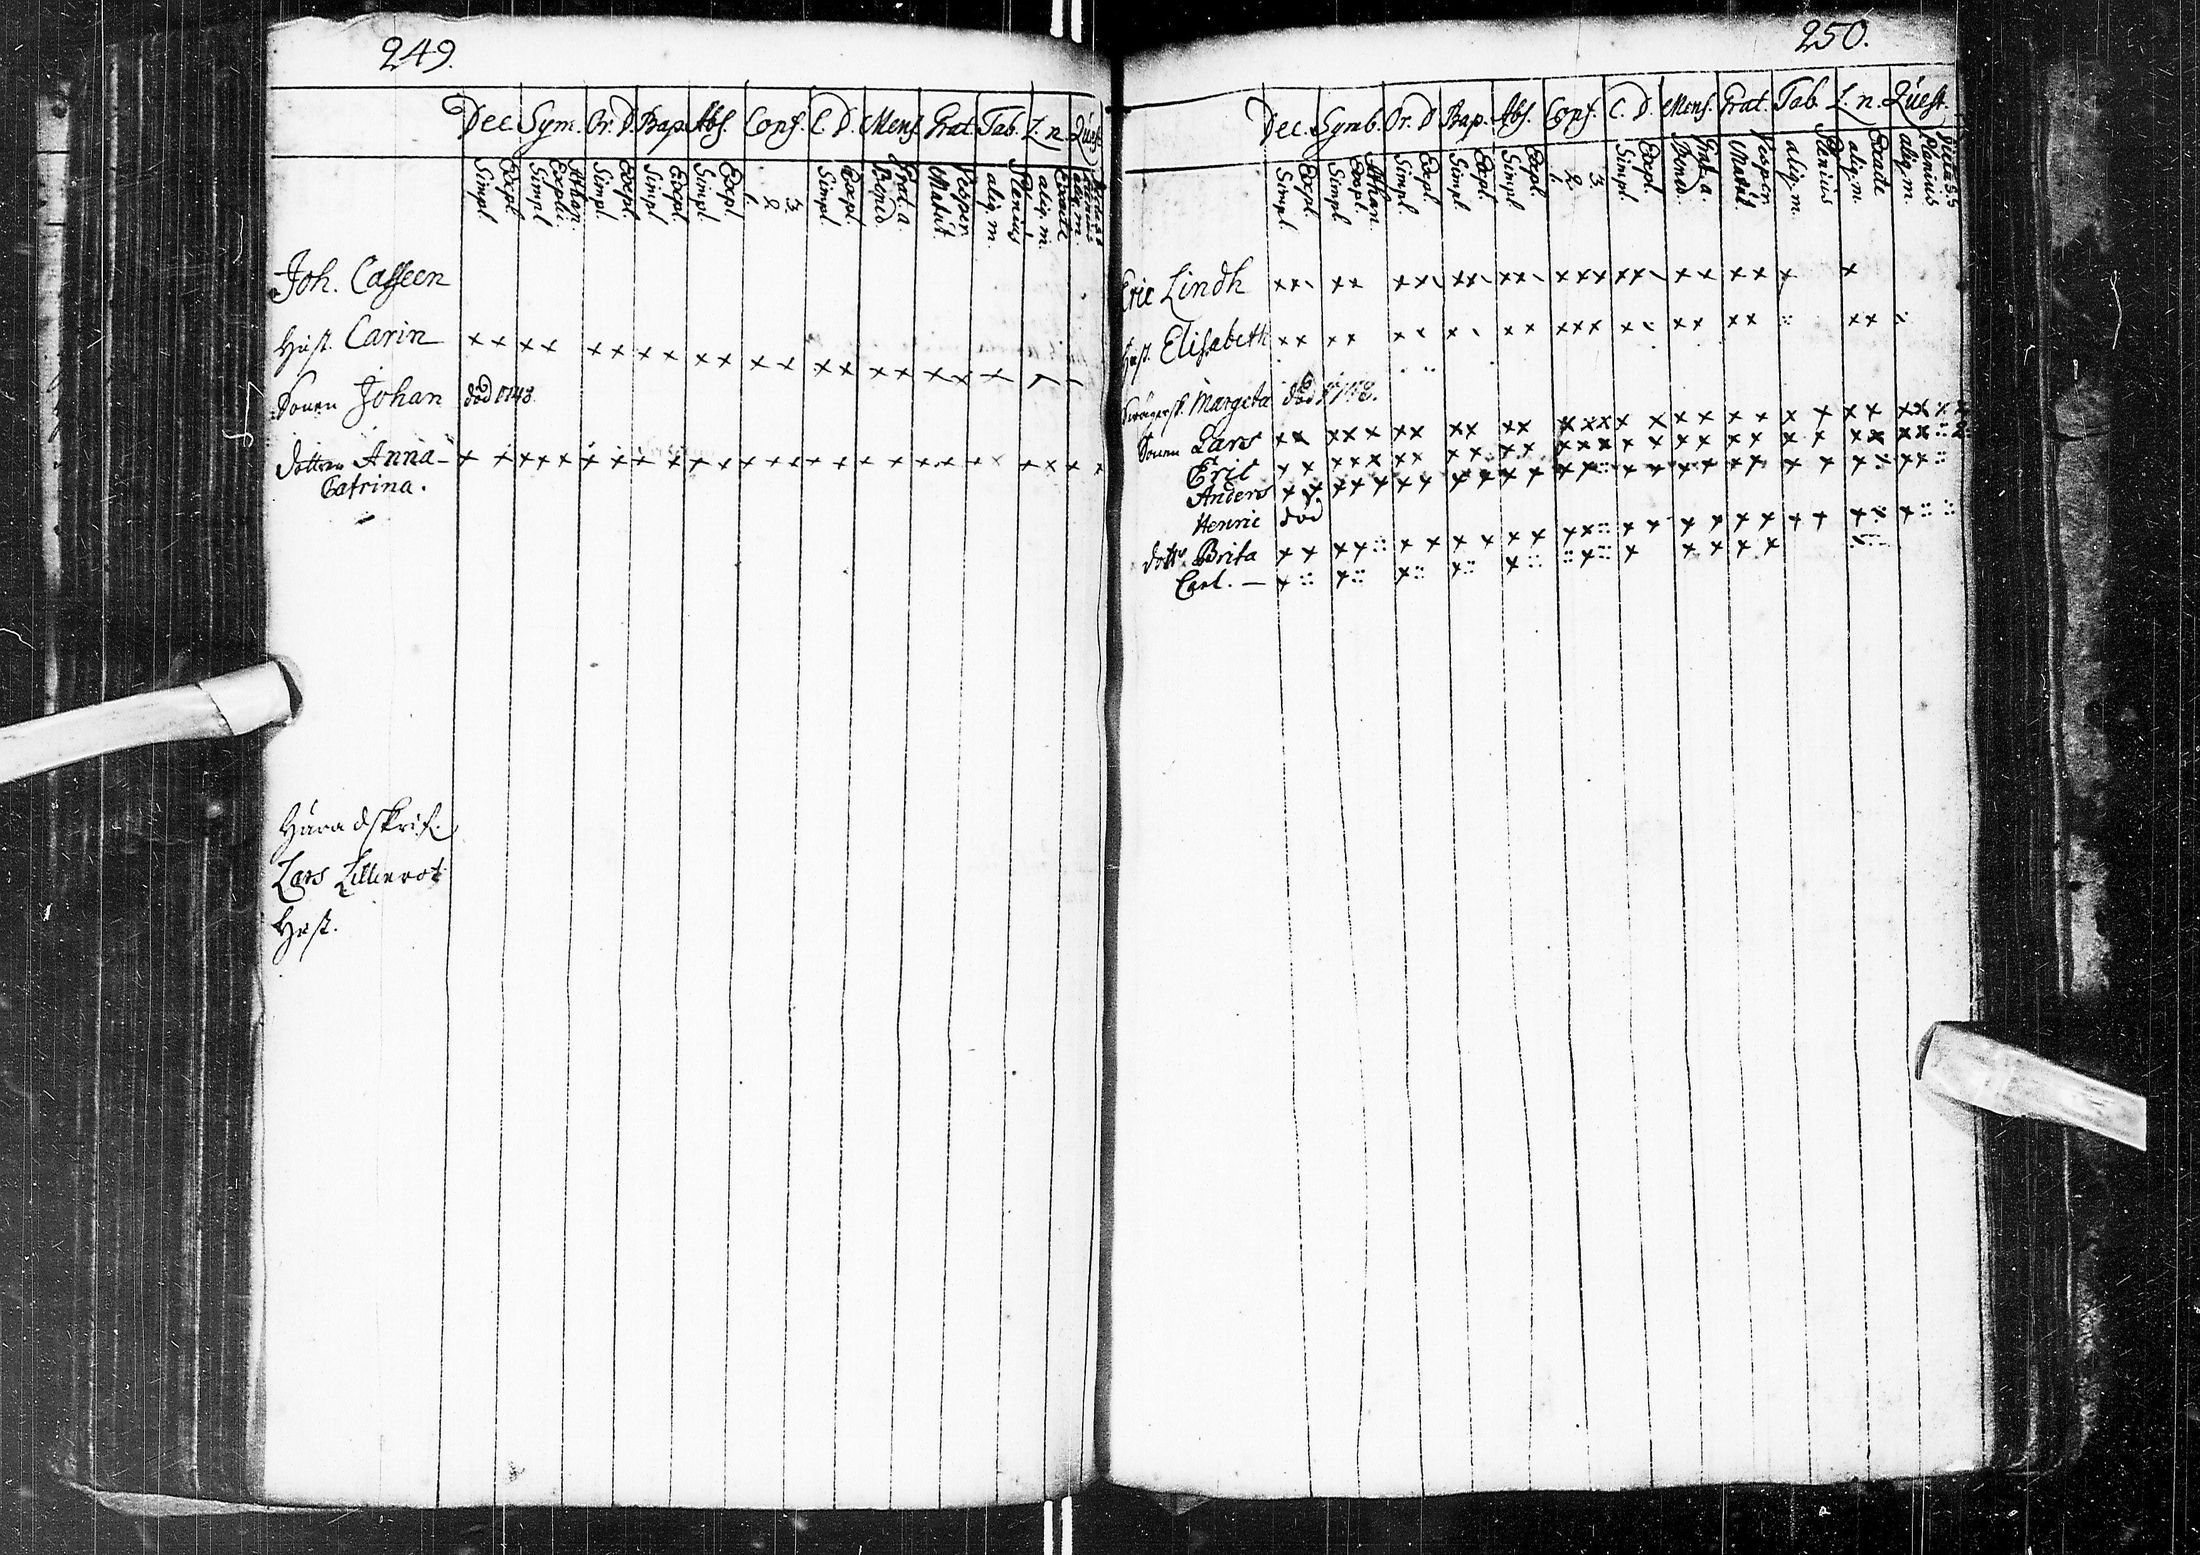 249.
Dec. Sym. Or. D. Bap. Abs. Conf. C. D. Mens. Grat. Tab. L. n. Quest.
Simpl. Expl. Simpl. Explic. Athan. Simpl. Expl. Simpl. Expl. Simpl. Expl. 1. 2 3. Simpl. Expl. Bened. Grat. a. Matut. Vesper. aliq. m. Plenius aliq. m. Exacte aliq. m.
Joh. Casseen
Hust. Carin x x x x x x x x x x x x x x x x x x x
Sonen Johan död 1748.
dottren Anna-
Catrina.
Häradskrif.
Lars Lillierot
Hust.
250.
Dec. Symb. Or. D Bap. Abs. Conf. C. D. Mens. Grat. Tab. L. n. Quest.
Simpl. Expl. Simpl. Expl. Athan. Simpl. Expl. Simpl. Expl. Simpl. Expl. 1. 2 3. Simpl. Expl. Bened. Grat. a. Matut. Vespern aliq. m. Plenius aliq. m. Exacte aliq. m. Plenius
Eric Lindh
Hust. Elisabeth
Margeta död
Sonen Lars
Eric
Anders
Henric död
dott. Brita
Carl. —